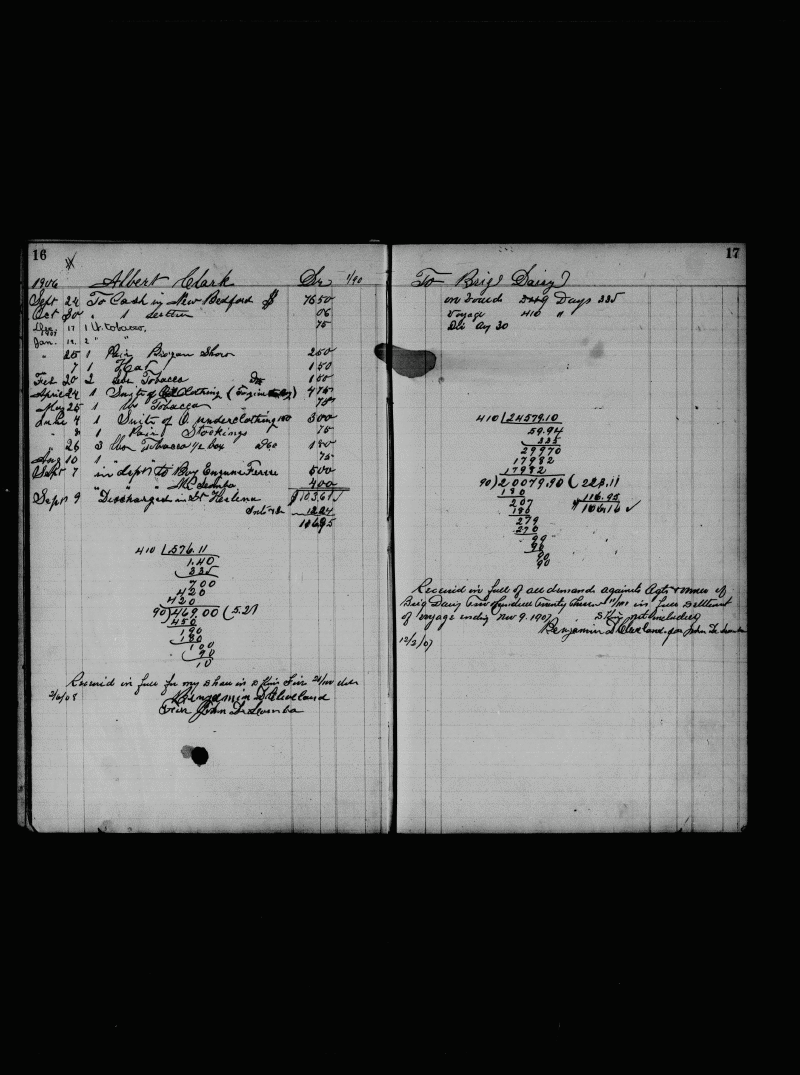 16
1906 Albert Clark Dr 1/90
Sept 24 To Cash in New Bedford $ 76 50
Oct 30 " 1 06
Dec 17 1 lb. tobacco, 75
1907
Jan. 12. 2 " "
" 25 1 Pair Brogan Shoes 2 50
" 7 1 Hat 1 50
Feb 20 2 Tobacco 1 50
April 24 1 Suit of Oil Clothing ( 4 75
May 25 1 lb Tobacco 75
June 4 1 Suits of underclothing 3 00
" 8 1 Pair Stockings 75
" 26 3 lbs Tobacco 1/2 box 1 80
Aug 10 1 " " 75
Sept 7 in dept to Boy 5 00
" " " 4 00
Sept 9 Discharged in St Helena $ 103.61
12 24
410 576.11
1.40
335
700
420
420
90) 469.00 ( 5.21
450
190
180
100
90
10
Received in full for my share in
2/6/08 Benjamin D Cleveland
for John
17
To Brig Daisy
on board Days 335
Voyage 410 "
410 24579.10
59.94
335
29970
17982
17982
90) 20079.90 ( 223.11
180 116.95
207 $ 106.16
180
279
270
99
90
90
90
Received in full of all demands against Agts & owners of
Brig Daisy Two Hundred Twenty Three 11/100 in full settlement
of voyage ending Nov 9. 1907 not included
Benjamin D Cleveland for John
12/3/07